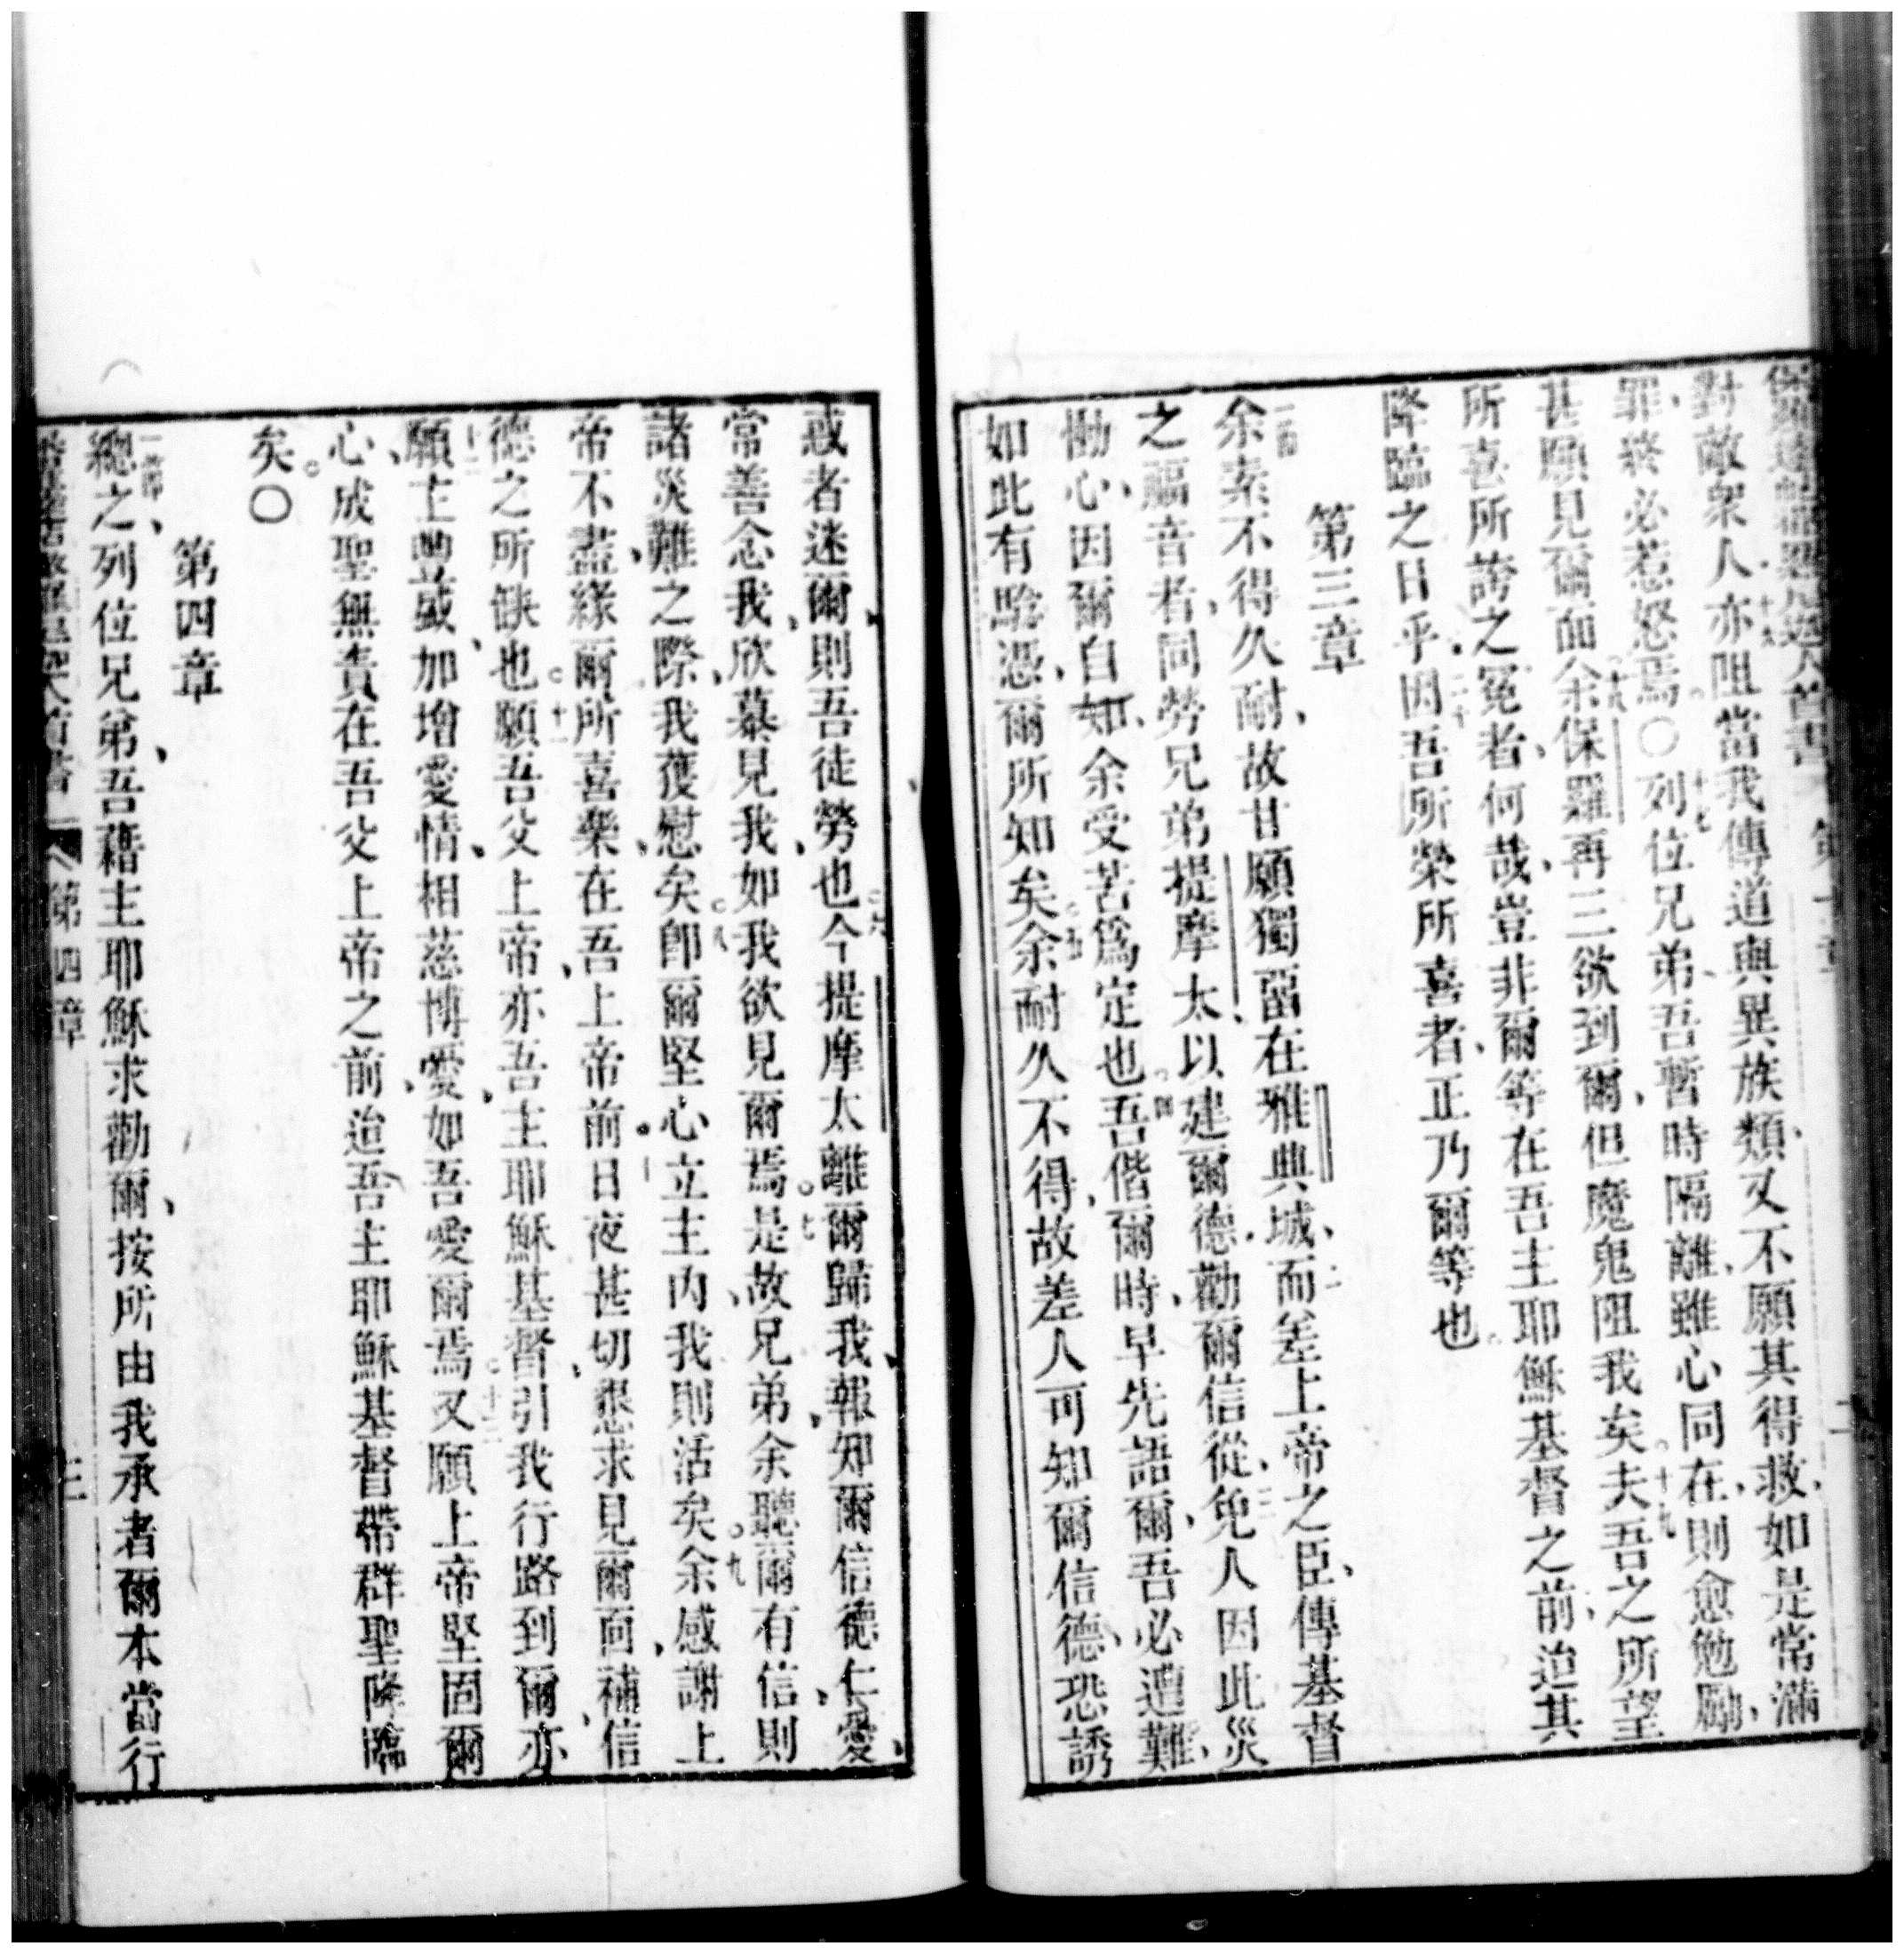 對敵衆人、十六亦阻當我傳道與異族類、又不願其得救、如是常滿
罪、終必惹怒焉。〇十七列位兄弟、吾暫時隔離、雖心同在、則愈勉勵、
甚願見爾面。十八余保羅再三欲到爾、但魔鬼阻我矣。十九夫吾之所望
所喜所誇之冕者、何哉、豈非爾等在吾主耶穌基督之前、迨其
降臨之日乎。二十因吾所榮所喜者、正乃爾等也。
第三章
一節余素不得久耐、故甘願獨畱在雅典城、二而差上帝之臣、傳基督
之福音者、同勞兄弟提摩太、以建爾德、勸爾信從、三免人因此災
慟心、因爾自知、余受苦爲定也。四吾偕爾時、早先語爾、吾必遭難、
如此有驗憑、爾所知矣。五余耐久不得、故差人可知爾信德、恐誘
惑者迷爾、則吾徒勞也。六今提摩太離爾歸我、報知爾信德仁愛、
常善念我、欣慕見我、如我欲見爾焉。七是故兄弟、余聽爾有信、則
諸災難之際、我獲慰矣。八卽爾堅心立主內、我則活矣。九余感謝上
帝不盡、緣爾所喜樂、在吾上帝前。日夜甚切懇求見爾面、補信
德之所缺也。十一願吾父上帝、亦吾主耶穌基督、引我行路到爾、亦
十二願主豐盛、加增愛情、相慈博愛、如吾愛爾焉。十三又願上帝堅固爾
心、成聖無責、在吾父上帝之前、迨吾主耶穌基督帶群聖降臨
矣。〇
第四章
一節總之、列位兄弟、吾藉主耶穌求勸爾、按所由我承者、爾本當行
第四章
三